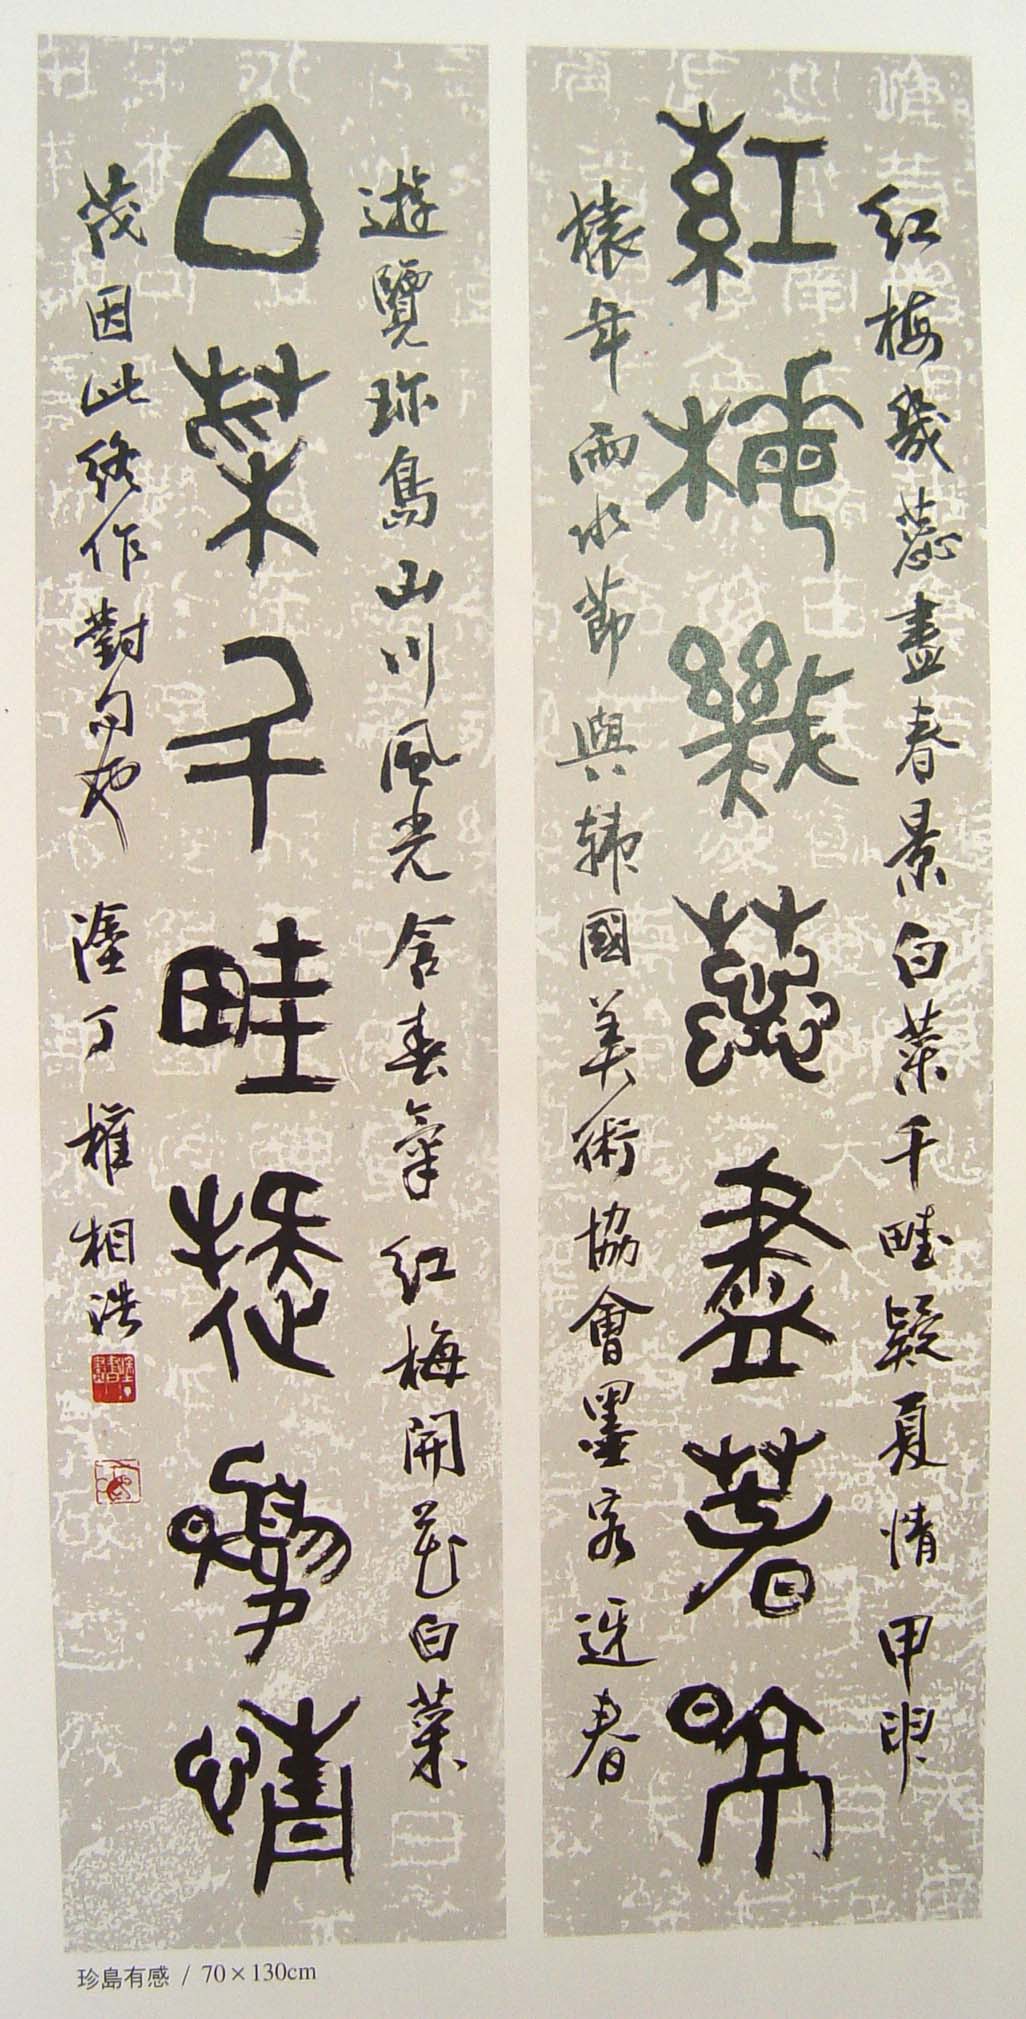 紅梅幾蕊盡春景
紅梅幾蕊盡春景白菜千畦疑夏情 甲申
猿年雨水節與韓國美術協會墨客迎春
白菜千畦疑夏情
遊覽珍島山川風光含春氣紅梅開花白菜
茂因此終作對句也 塗丁 權相浩
珍島有感 / 70×130cm